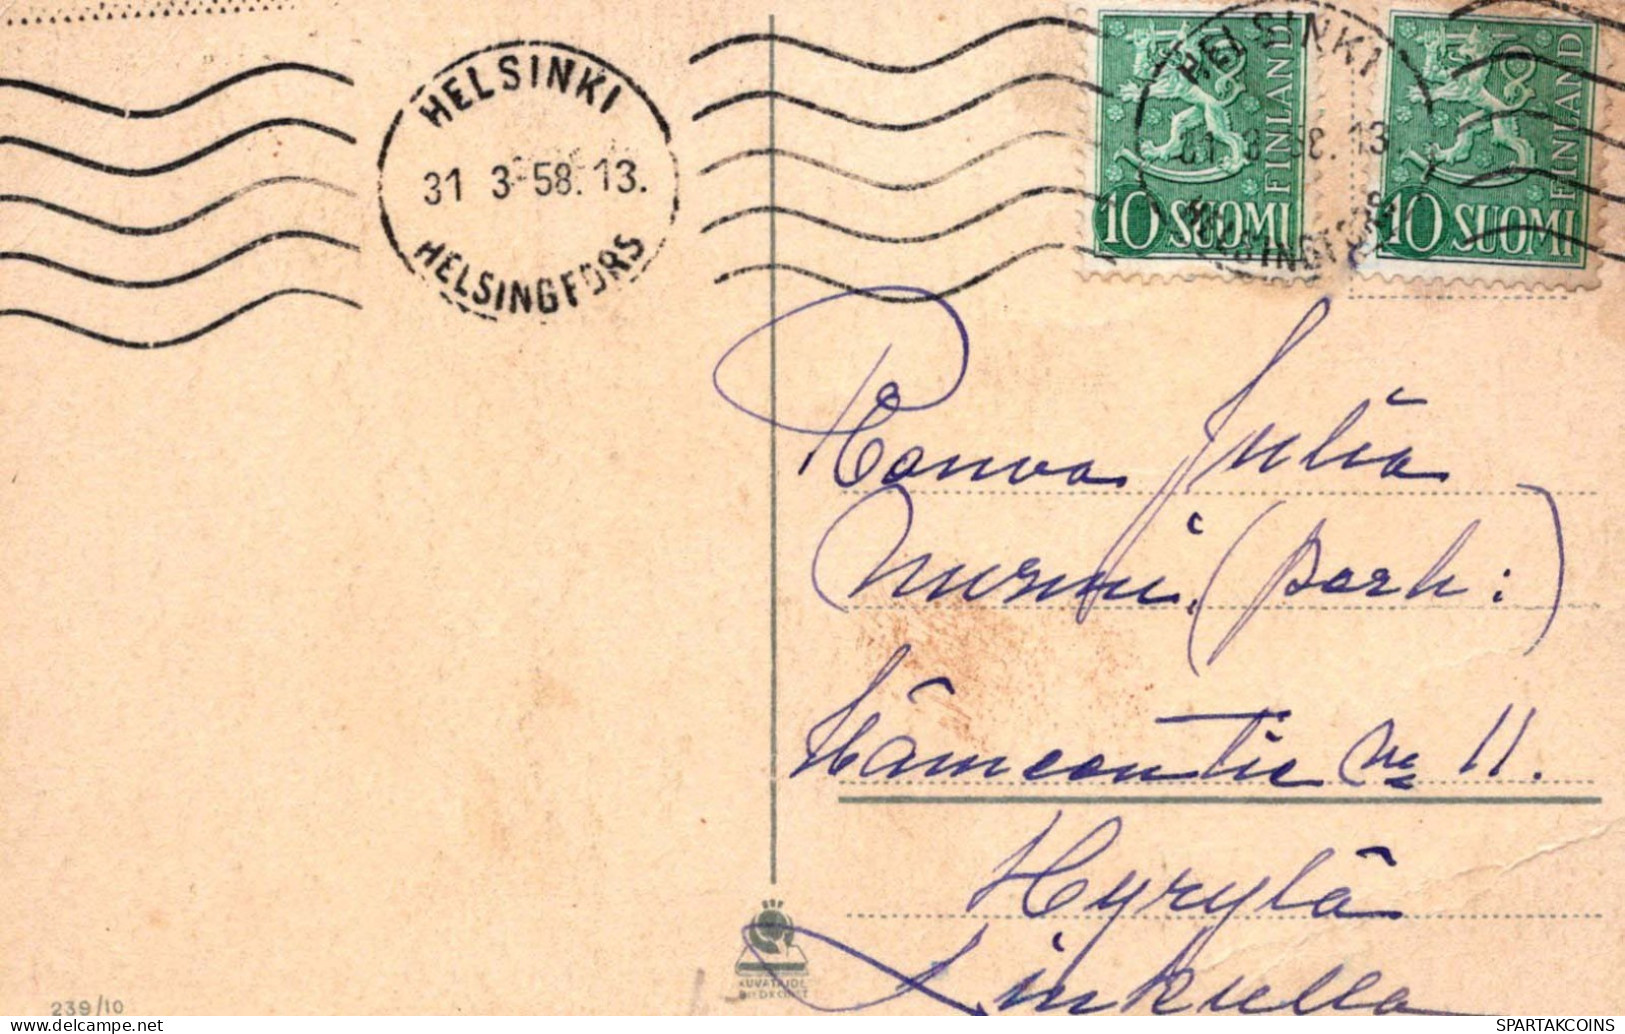 HELSINKI
31 3-58. 13.
HELSINGFORS
HELSINKI
31 3 58. 13
HELSINGFORS
FINLAND
10 SUOMI
FINLAND
10 SUOMI
Rouva Julia
Nurmi. (perh:)
Hämeentie No 11.
Hyrylä
KUVATAIDE
239/10
SPARTAKCOINS